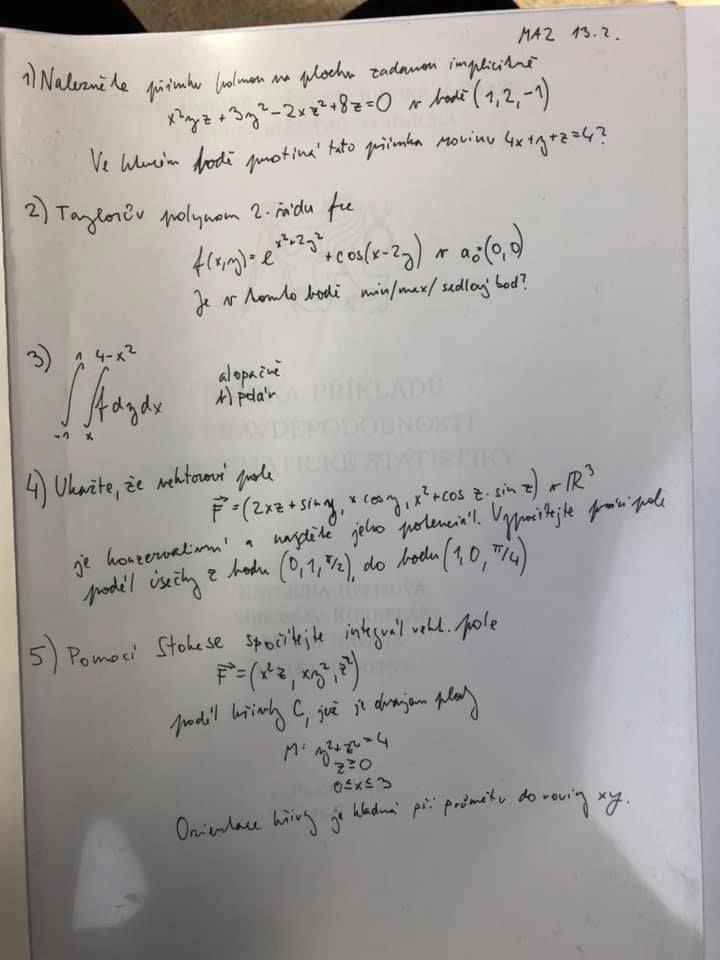 MA2 13.2.
1) Nalezněte přímku kolmou na plochu zadanou implicitně
x²yz + 3y² - 2xz² + 8z = 0 v bodě (1, 2, -1)
Ve kterém bodě protíná tato přímka rovinu 4x+y+z=4?
2) Taylorův polynom 2. řádu fce
f(x,y) = e^{x²+2y²} + cos(x-2y) v a₀=(0,0)
Je v tomto bodě min/max/sedlový bod?
3) ∫_{-1}^{1} ∫_{x}^{4-x²} f dy dx
a) opačně
b) polár
4) Ukažte, že vektorové pole
F⃗ = (2xz + sin y, x cos y, x² + cos z · sin z) v ℝ³
je konzervativní a najděte jeho potenciál. Vypočítejte práci pole
podél úsečky z bodu (0, 1, π/2), do bodu (1, 0, π/4)
KATEŘINA HELISOVÁ
5) Pomocí Stokese spočítejte integrál vekt. pole
F⃗ = (x²z, xy², z²)
podél křivky C, jež je okrajem plochy
M: y²+z²=4
z≥0
0≤x≤3
Orientace křivky je kladná při průmětu do roviny xy.